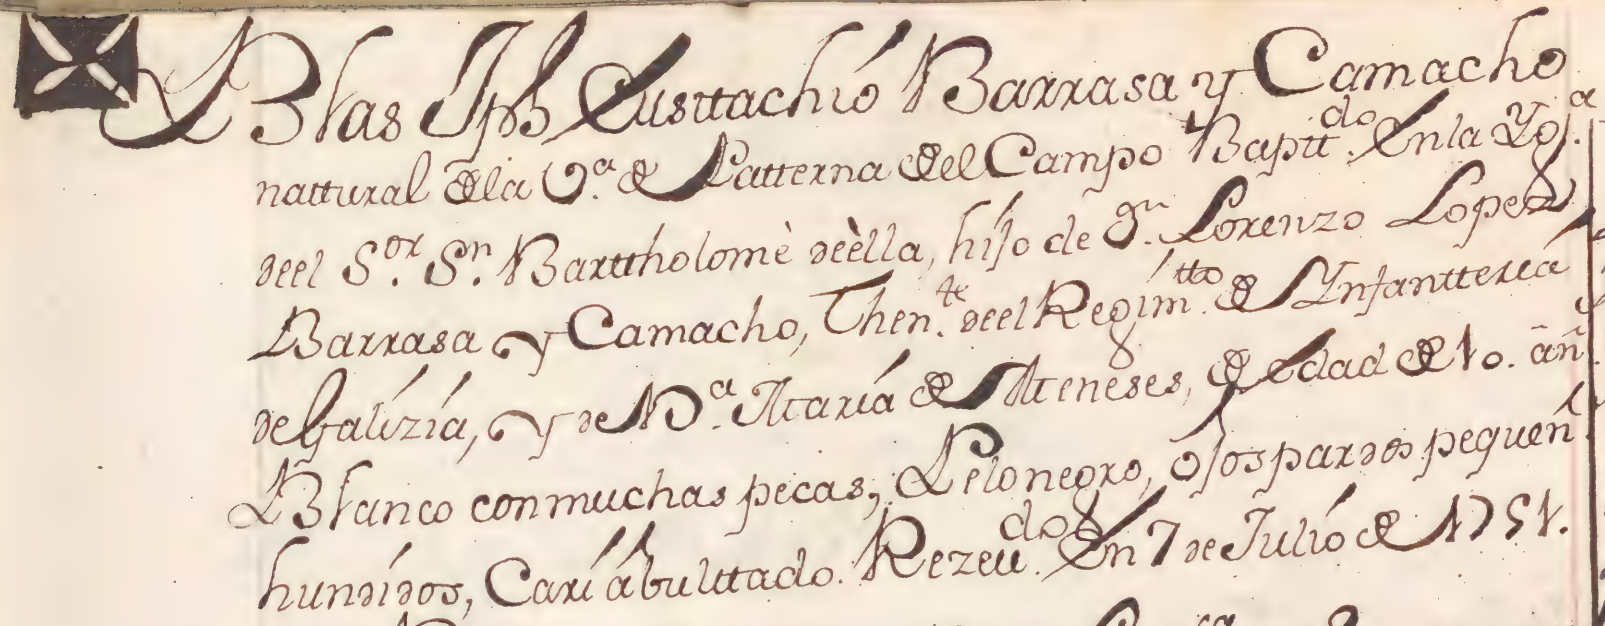 Blas Jph Eusttachio Barrasa y Camacho
nattural de la V.ª de Patterna del Campo Baptt.do En la Yg.ª
deel S.or S.n Bartthólomè deèlla, hijo de D.n Lorenzo Lopez
Barrasa y Camacho, Then.te deel Regim.tto de Ynfantteria
de Galizia, y de D.ª Maria de Meneses, de edad de 10. añ
Blanco con muchas pecas, Pelo negro, ojos pardos pequeñ
hundidos, Cari abulttado. Rezeu.do En 7 de Julio de 1751.